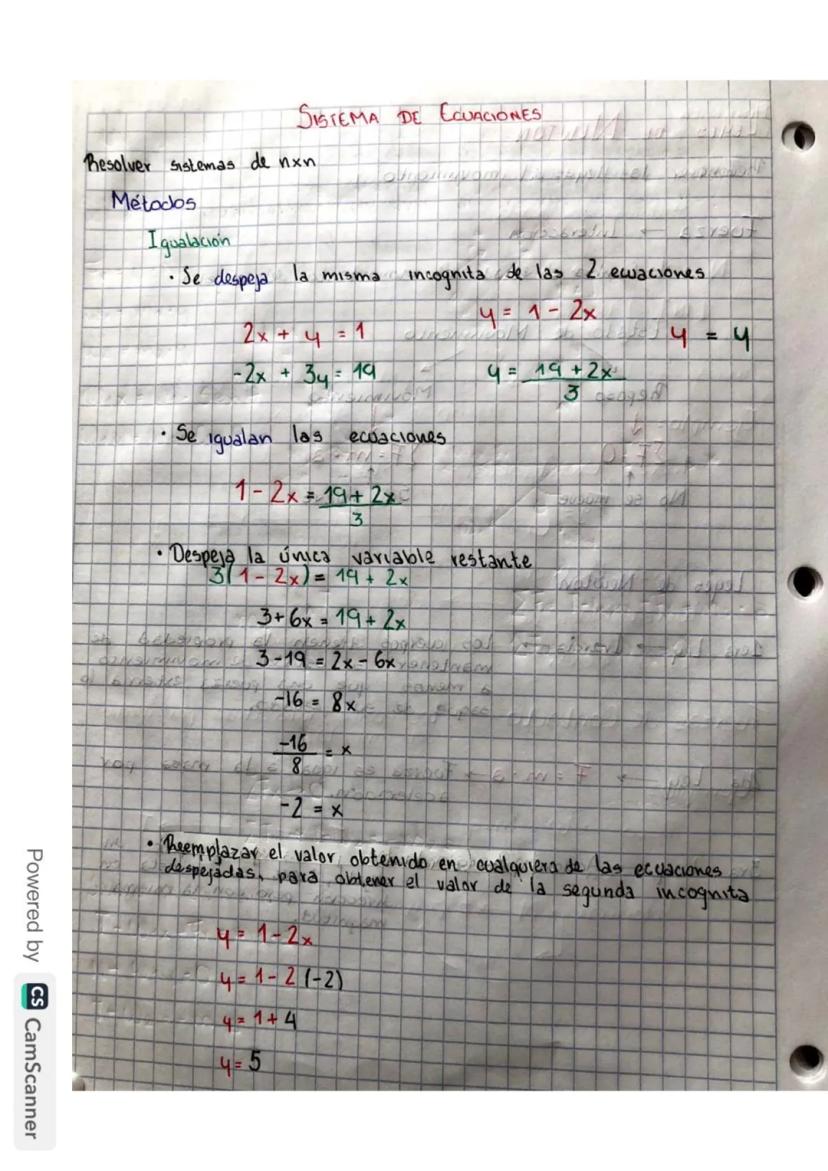 SISTEMA DE ECUACIONES
Resolver sistemas de nxn
Métodos
Igualación
· Se despeja la misma incognita de las 2 ecuaciones
2x + y = 1
y = 1 - 2x
y = y
-2x + 3y = 19
y = 19 + 2x / 3
· Se igualan las ecuaciones
1 - 2x = 19 + 2x / 3
· Despeja la única variable restante
3(1 - 2x) = 19 + 2x
3+6x = 19 + 2x
3-19 = 2x - 6x
-16 = 8x
-16 / 8 = x
-2 = x
· Reemplazar el valor obtenido en cualquiera de las ecuaciones
despejadas, para obtener el valor de la segunda incognita
y = 1 - 2x
y = 1 - 2 (-2)
y = 1 + 4
y = 5
Powered by CS CamScanner